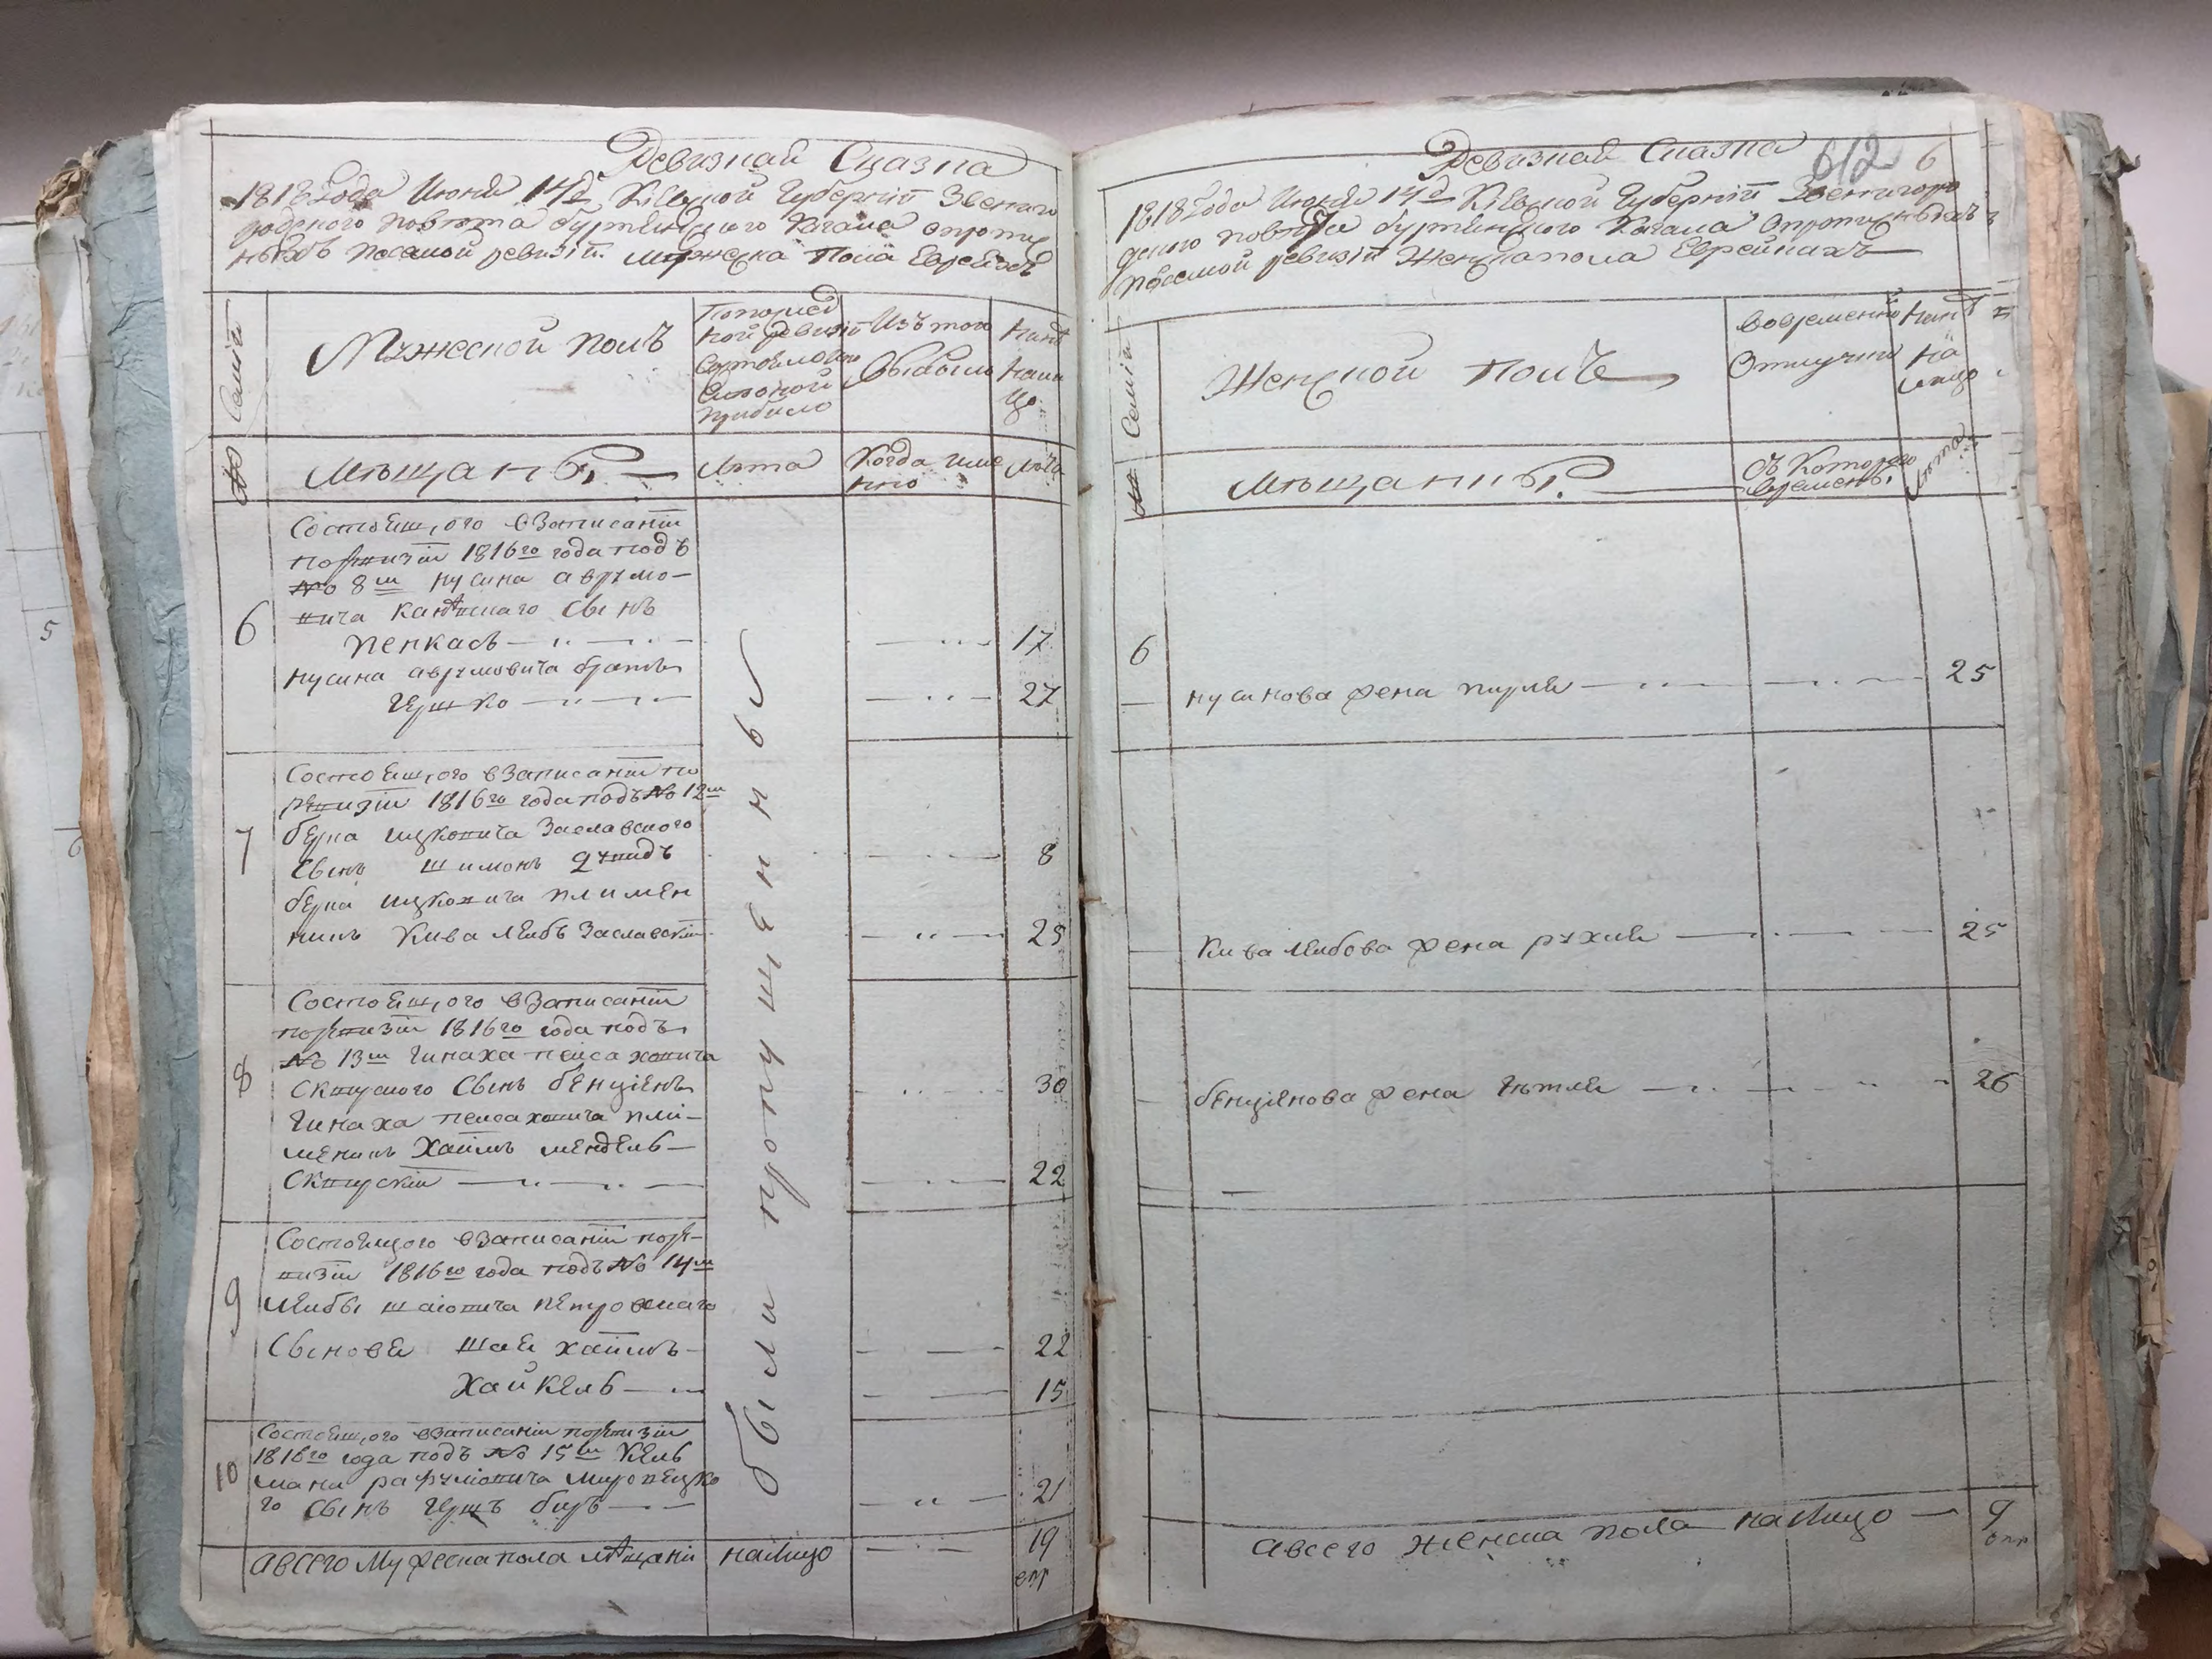 Ревизная Сказка
1818 года Июня 14д Кіевской Губерніи Звениго
родского повѣта буртинского Кагала опротив
нѣвъ посамой ревизіи. Мужеска Пола Евреяхъ
№ Семій
Мужеской полъ
Попослед
ной ревизіи
Состояло
Силтой
прибыло
Изъ того
Выбыло
Нынѣ
Нали
цо
Мѣщанъ
Лѣта
Когда име
нно
Лѣта
6
Состоящого взаписаніи
поревизіи 1816го года подъ
№ 8м нусина аврумо-
вича Канѣвскаго Сынъ
пенкасъ 17
нусина аврумовича братъ
Гершко 27
7
Состоящого взаписаніи по
ревизіи 1816го года подъ № 12м
берка ицковича Заславского
Сынъ шимонъ Дувидъ 8
берка ицковича племен
никъ Кива Лейбъ Заславскій 25
8
Состоящого взаписаніи
поревизіи 1816го года подъ
№ 13м Гинаха пейсаховича
Сквирского Сынъ бенціенъ 30
Гинаха пейсаховича пле-
меникъ Хаимъ мендель
Сквирскій 22
9
Состоящого взаписаніи поре-
визіи 1816го года подъ № 14м
Лейбы шаіовича петровскаго
Сыновя шая хаимъ 22
Хайкель 15
10
Состоящого взаписаніи поревизіи
1816го года подъ № 15м Кель
мана рафуліовича Мировецко
го Сынъ Гершъ беръ 21
были пропущенны
авсего Мужеска пола мѣщанъ налицо 19
Ревизная Сказка
612 6
1818 года Июня 14д Кіевской Губерніи Звенигоро
дского повѣта буртинского Кагала
посамой ревизіи Женска пола Еврейкахъ
№ Семій
Женской полъ
Вовременной
Отлучки
Нынѣ
На
лицо
Мѣщанъ
Съ Которого
времени
Лѣта
6
нусинова жена перля 25
Кива Лейбова жена рухля 25
бенціянова жена Гѣтля 26
авсего женска пола налицо 9